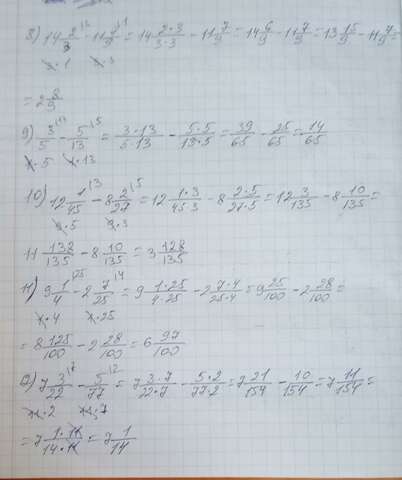 8) 14 2/3 - 11 7/9 = 14 2·3/3·3 - 11 7/9 = 14 6/9 - 11 7/9 = 13 15/9 - 11 7/9 =
= 2 8/9
9) 3/5 - 5/13 = 3·13/5·13 - 5·5/13·5 = 39/65 - 25/65 = 14/65
10) 12 1/45 - 8 2/27 = 12 1·3/45·3 - 8 2·5/27·5 = 12 3/135 - 8 10/135 =
11 138/135 - 8 10/135 = 3 128/135
11) 9 1/4 - 2 7/25 = 9 1·25/4·25 - 2 7·4/25·4 = 9 25/100 - 2 28/100 =
= 8 125/100 - 2 28/100 = 6 97/100
12) 7 3/22 - 5/77 = 7 3·7/22·7 - 5·2/77·2 = 7 21/154 - 10/154 = 7 11/154 =
= 7 1·11/14·11 = 7 1/14